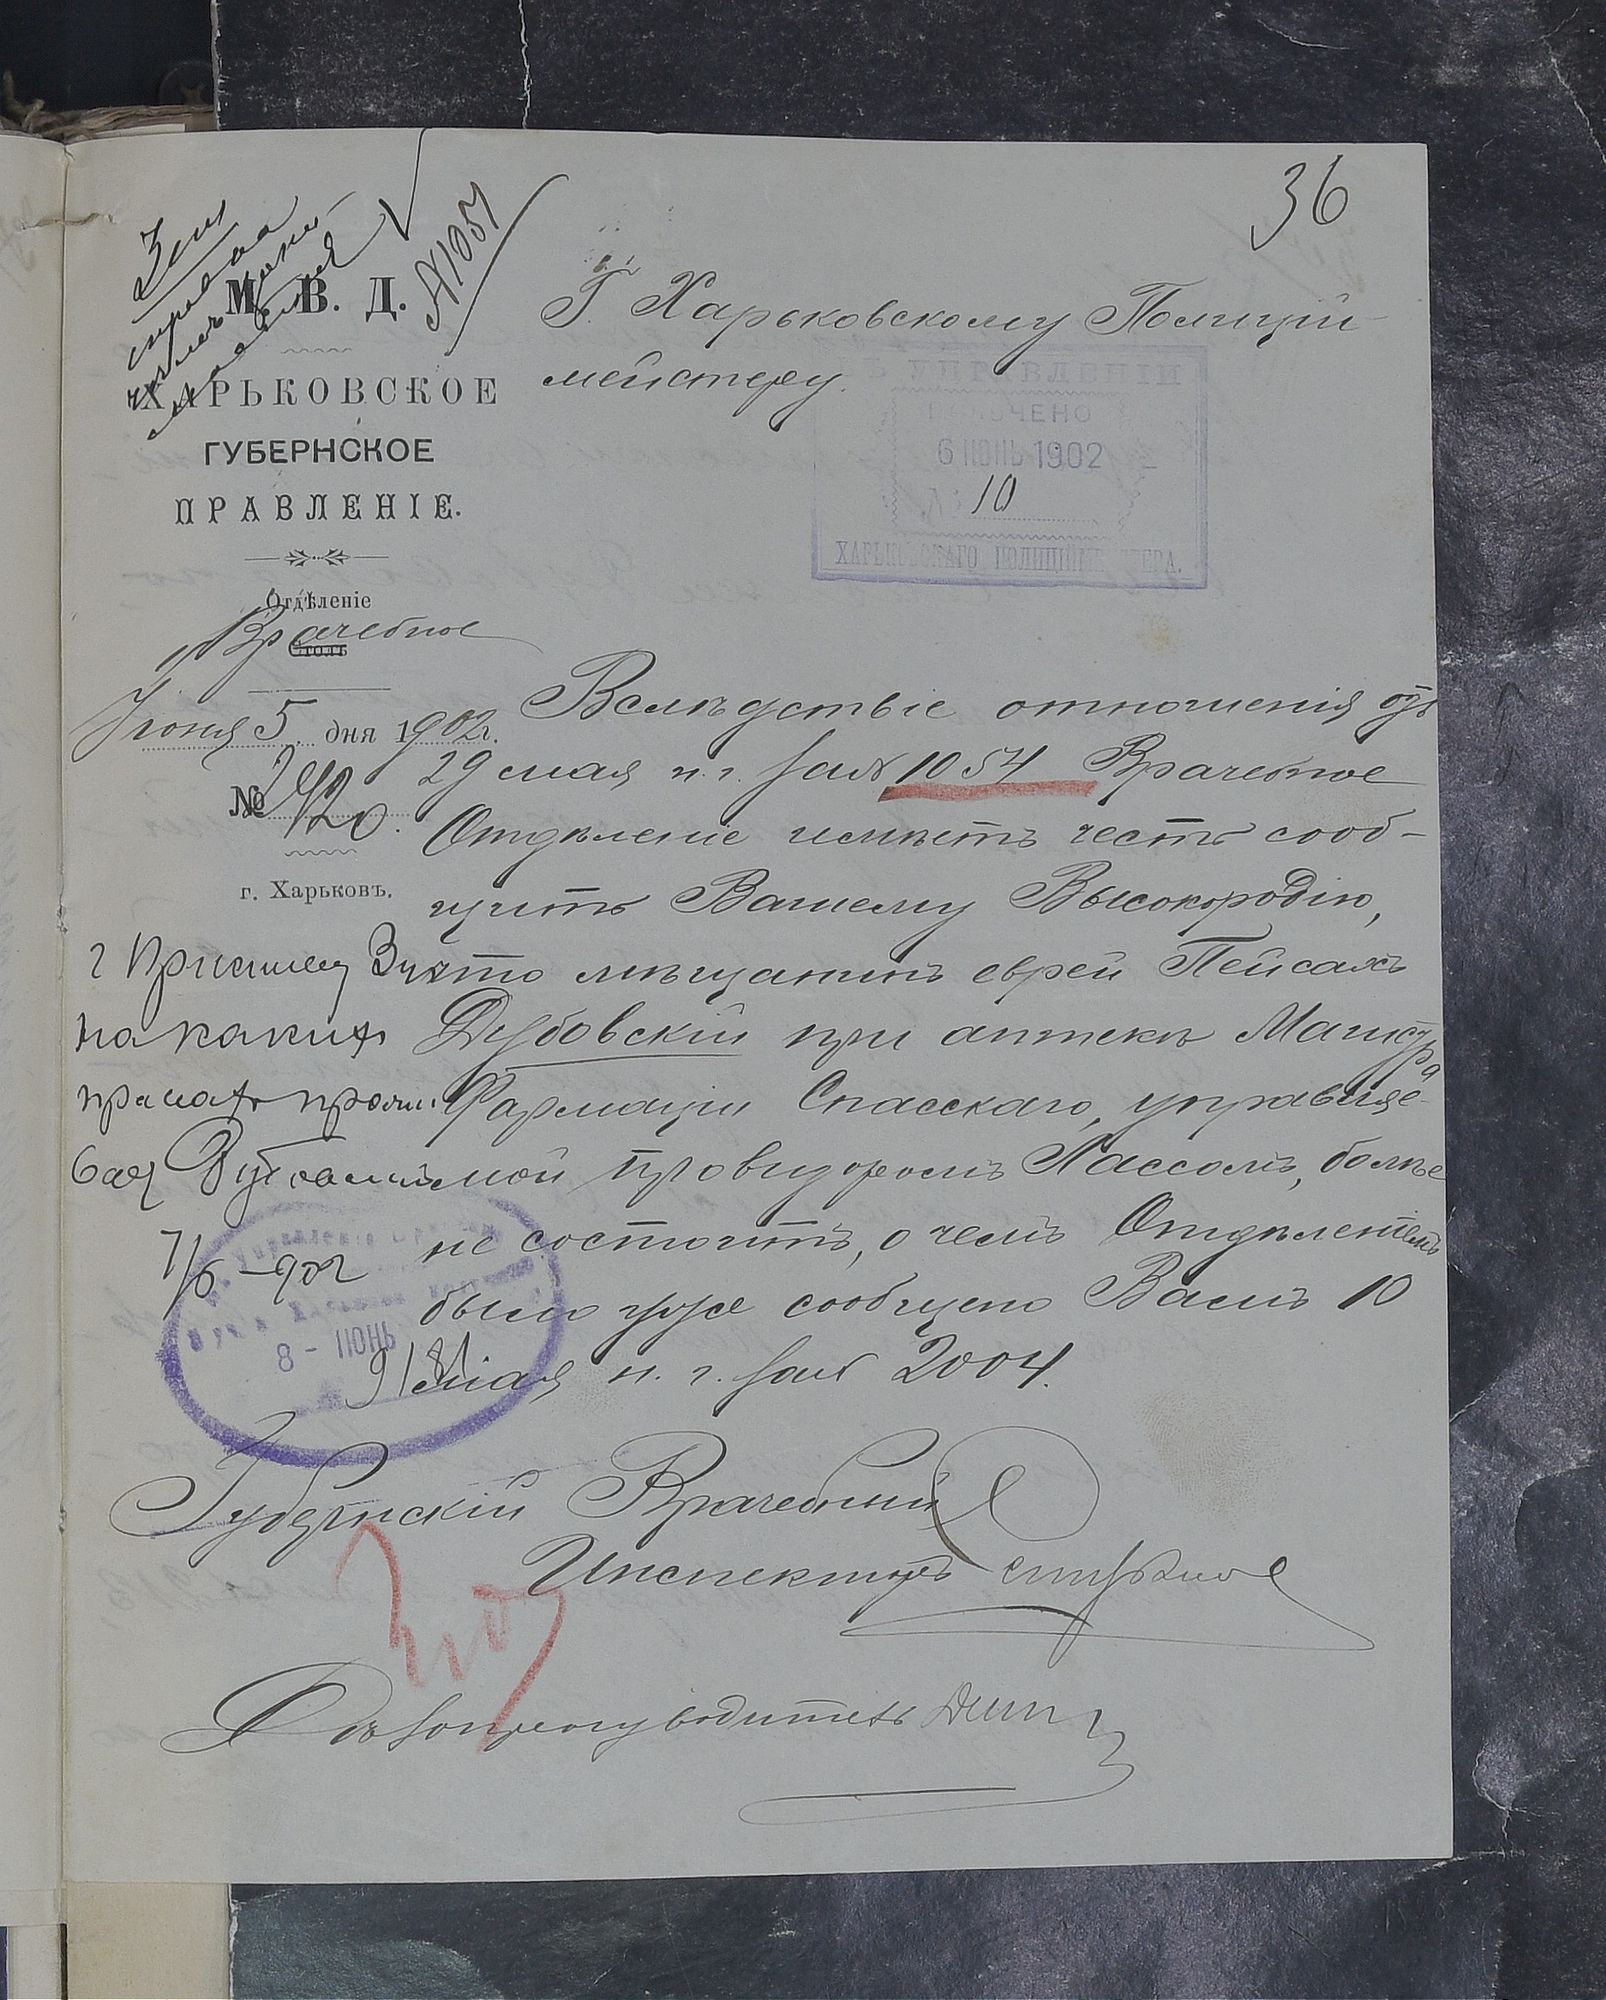 36
№ 1054
М. В. Д.
ХАРЬКОВСКОЕ
ГУБЕРНСКОЕ
ПРАВЛЕНІЕ.
Отдѣленіе
Врачебное
Столъ
Іюня 5 дня 1902 г.
№ 2420.
г. Харьковъ.
Г. Харьковскому Полицій-
мейстеру.
УПРАВЛЕНІИ
ПОЛУЧЕНО
6 ІЮНЬ 1902
№ 10
ХАРЬКОВСКАГО ПОЛИЦІЙМЕЙСТЕРА.
Вслѣдствіе отношенія отъ
29 мая н. г. за № 1054 Врачебное
Отдѣленіе имѣетъ честь сооб-
щить Вашему Высокородію,
что мѣщанинъ еврей Пейсахъ
Дубовскій при аптекѣ Магистра
Фармаціи Спасскаго, управляе-
мой провизоромъ Хассомъ, болѣе
не состоитъ, о чемъ Отдѣленіемъ
было уже сообщено Вамъ 10
мая н. г. за № 2004.
г Приставу
на какихъ
правахъ прожи-
ваетъ Дубовскій
7/6 – 902
8 - ІЮНЬ
Губернскій Врачебный
Инспекторъ
Дѣлопроизводитель